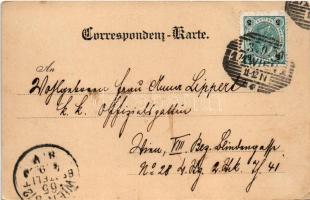 Correspondenz-Karte.
An
Wohlgeboren Frau Anna Lippert
k. k. Offizialsgattin
Wien, VIII Bez. Lindengasse
No 28 2. Stg. 2. Stk. T. 41
WIEN